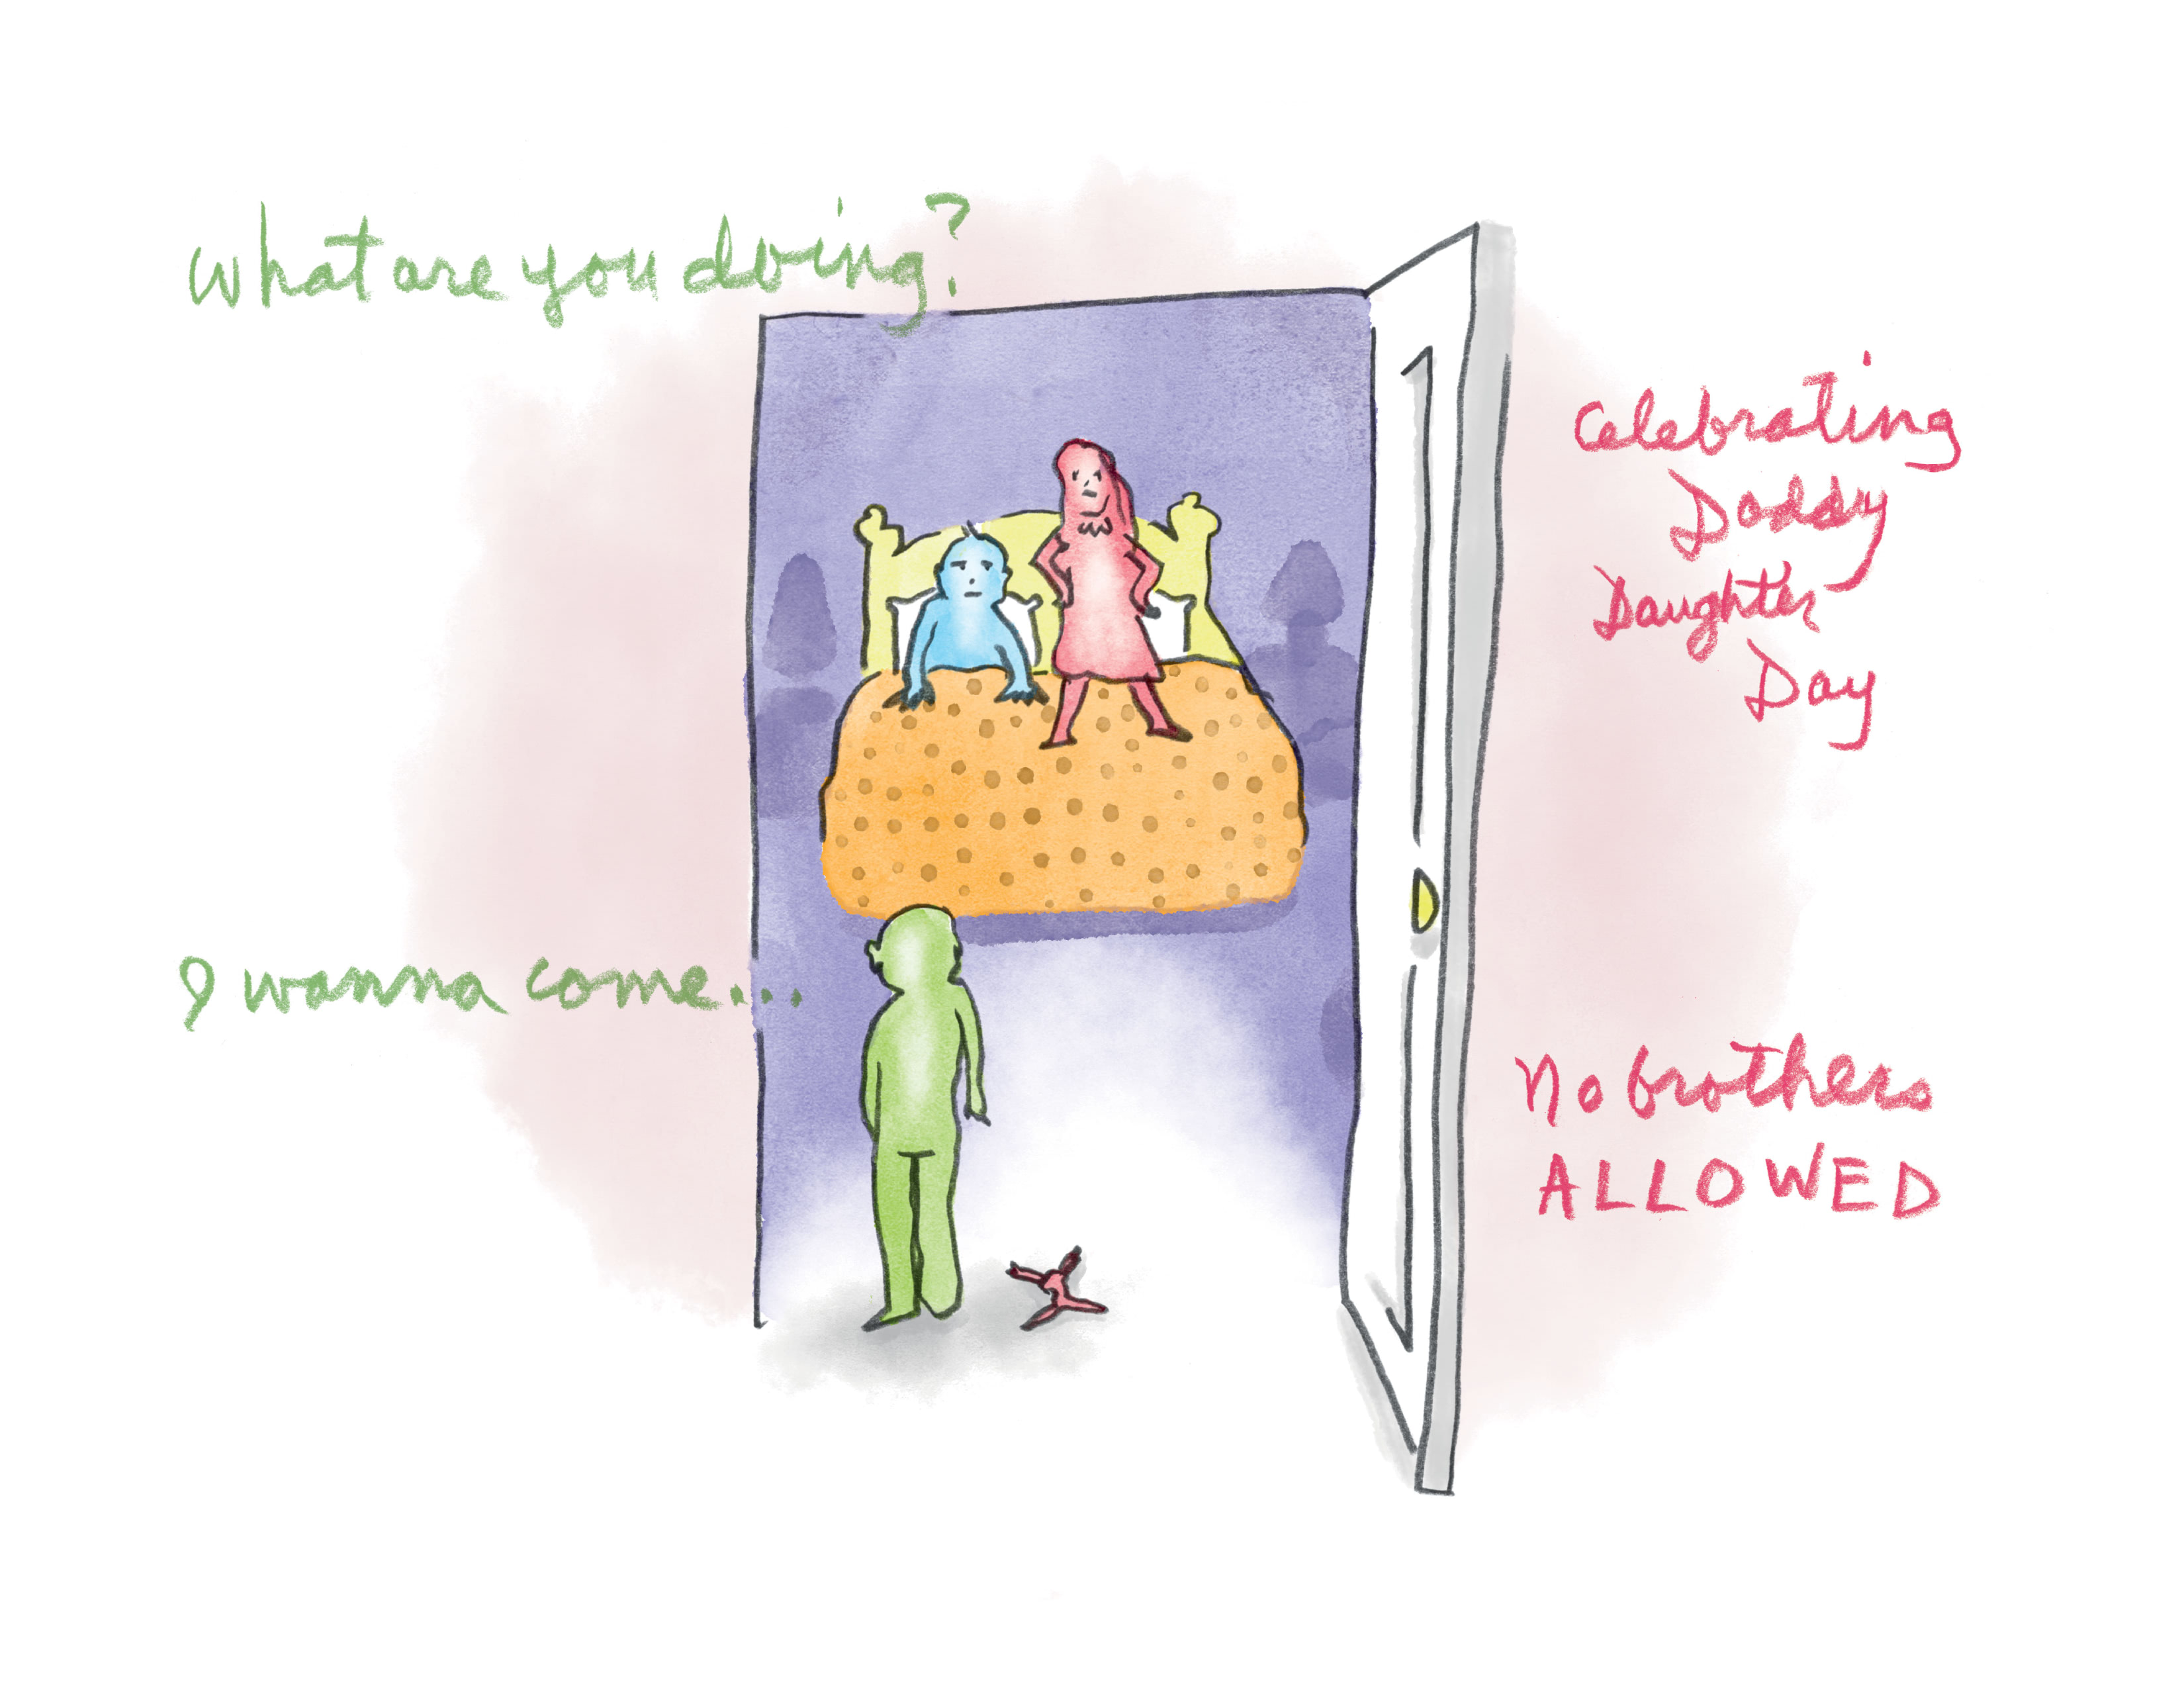 What are you doing?
Celebrating
Daddy
Daughter
Day
I wanna come...
No brothers
ALLOWED